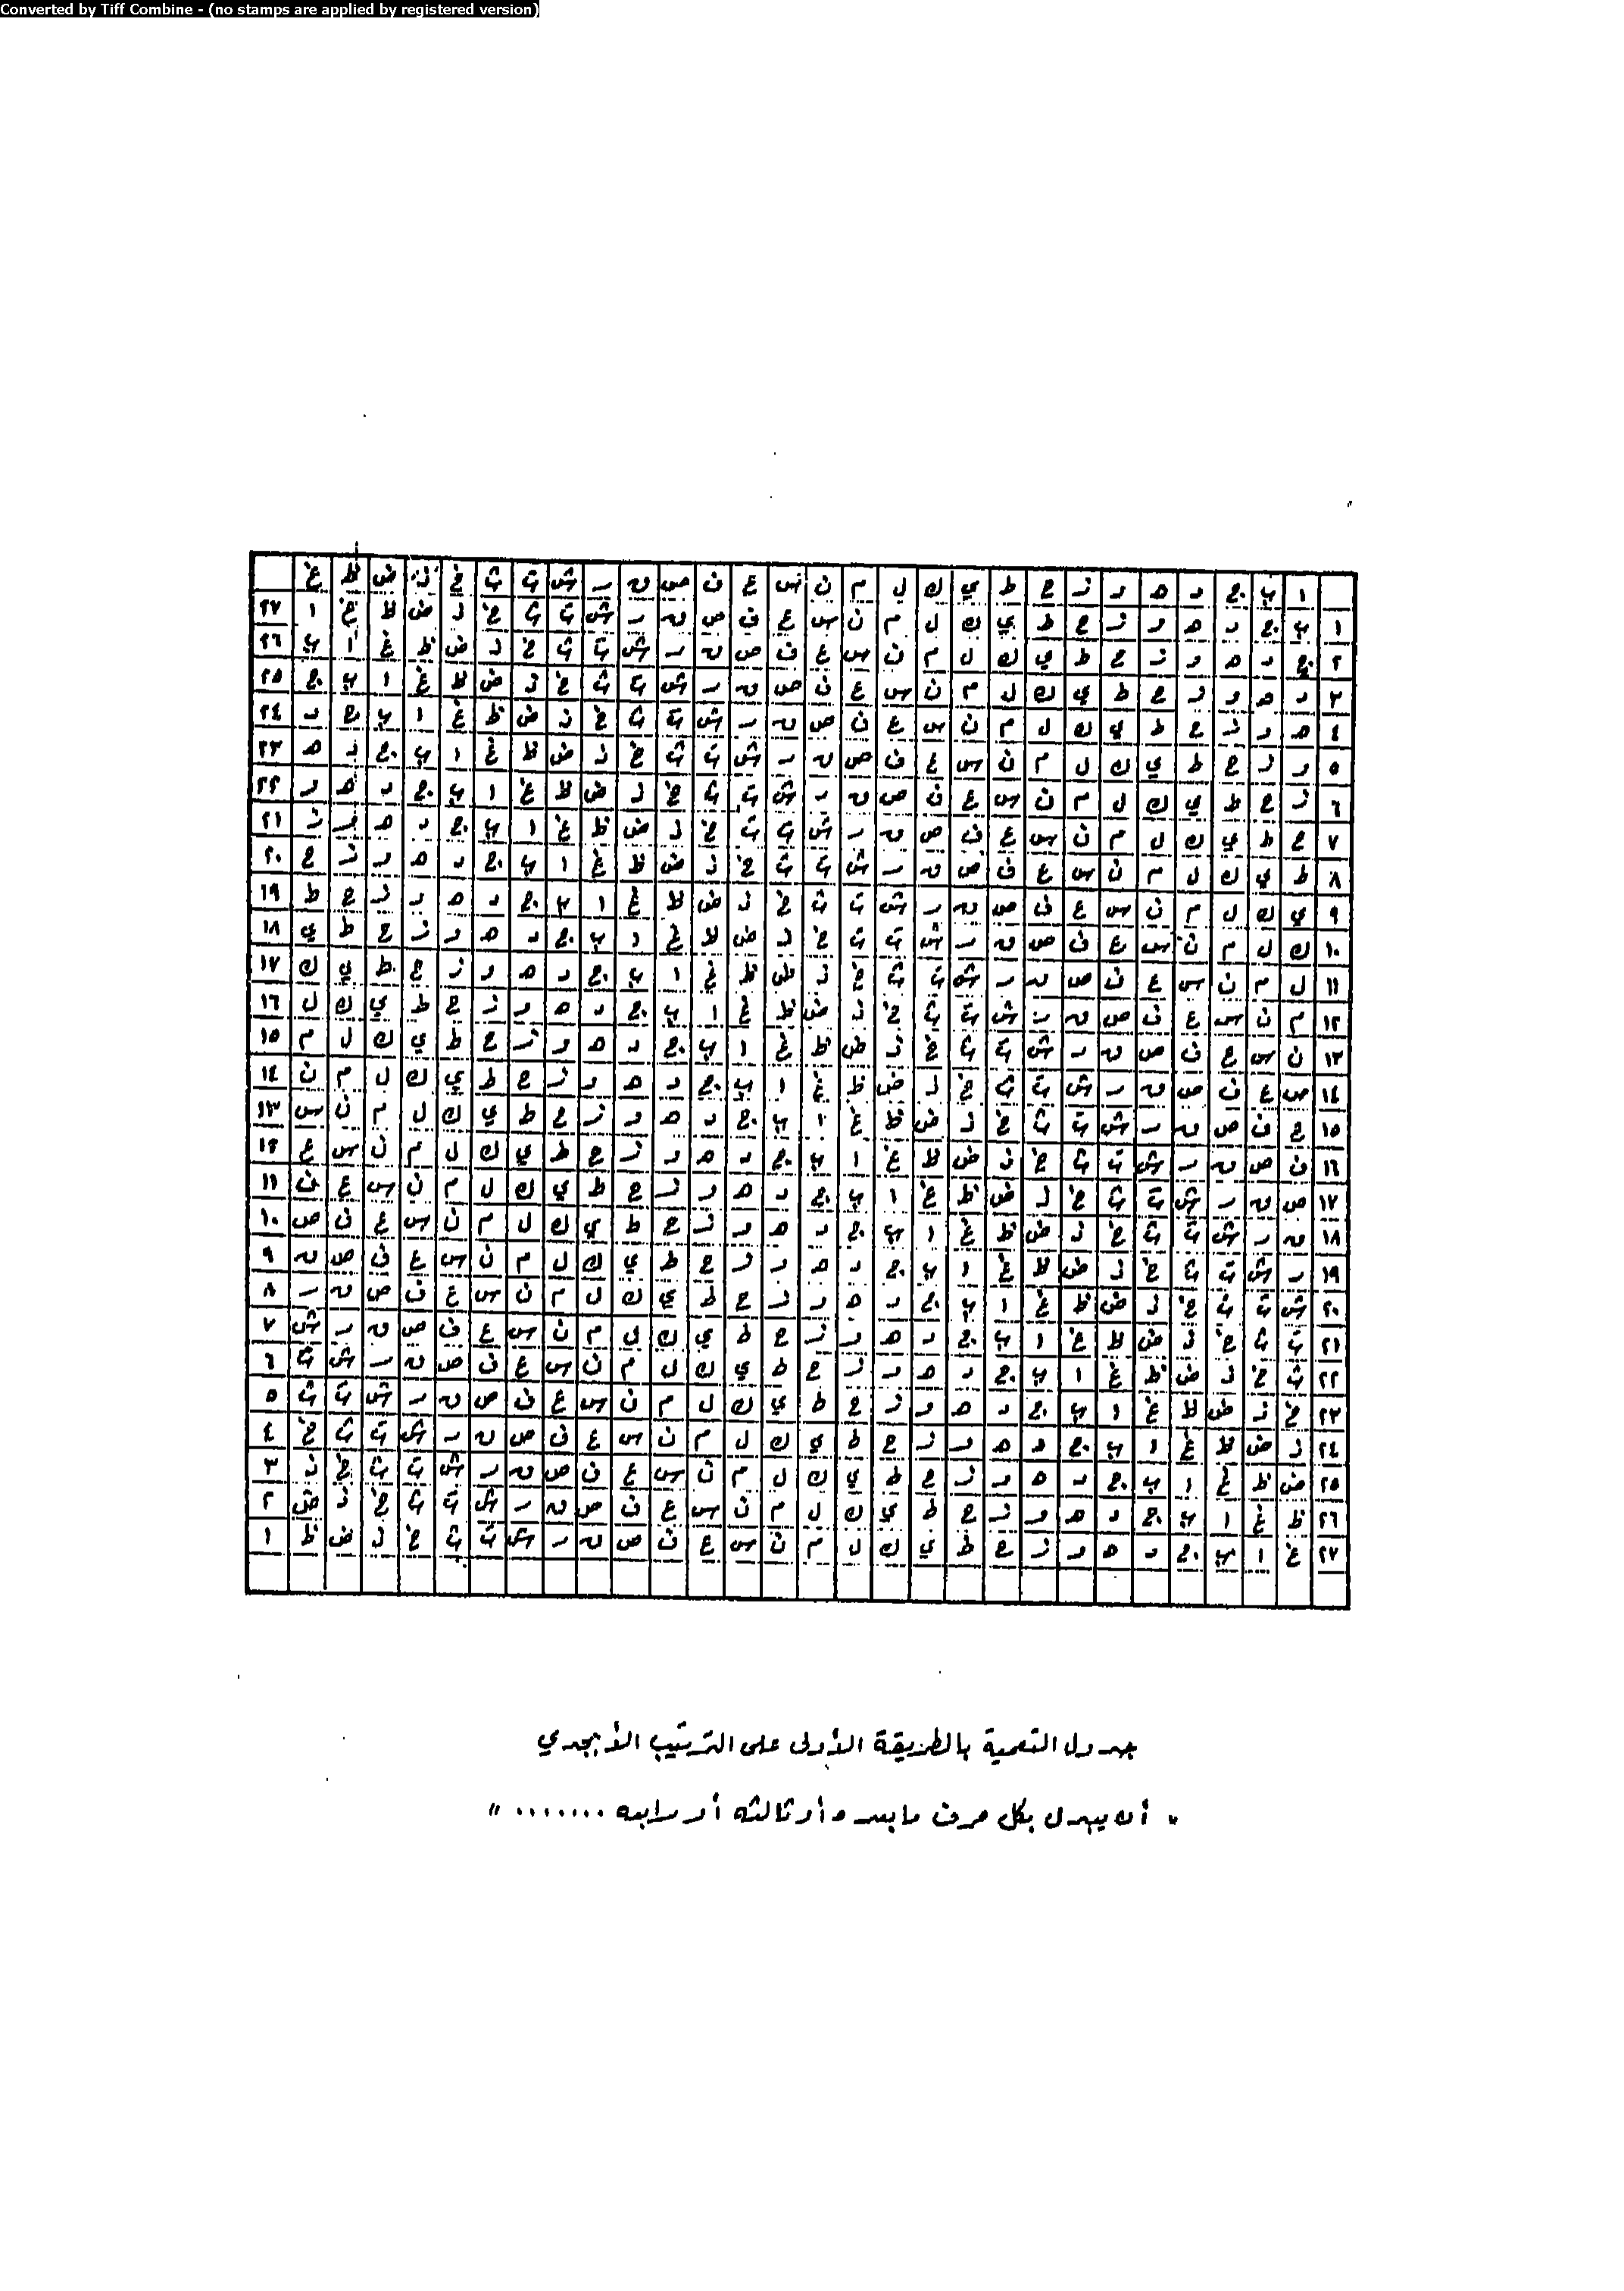 Converted by Tiff Combine - (no stamps are applied by registered version)
ا ب ج د ه و ز ح ط ي ك ل م ن س ع ف ص ق ر ش ت ث خ ذ ض ظ غ
١ ب ج د ه و ز ح ط ي ك ل م ن س ع ف ص ق ر ش ت ث خ ذ ض ظ غ ا ٢٧
٢ ج د ه و ز ح ط ي ك ل م ن س ع ف ص ق ر ش ت ث خ ذ ض ظ غ ا ب ٢٦
٣ د ه و ز ح ط ي ك ل م ن س ع ف ص ق ر ش ت ث خ ذ ض ظ غ ا ب ج ٢٥
٤ ه و ز ح ط ي ك ل م ن س ع ف ص ق ر ش ت ث خ ذ ض ظ غ ا ب ج د ٢٤
٥ و ز ح ط ي ك ل م ن س ع ف ص ق ر ش ت ث خ ذ ض ظ غ ا ب ج د ه ٢٣
٦ ز ح ط ي ك ل م ن س ع ف ص ق ر ش ت ث خ ذ ض ظ غ ا ب ج د ه و ٢٢
٧ ح ط ي ك ل م ن س ع ف ص ق ر ش ت ث خ ذ ض ظ غ ا ب ج د ه و ز ٢١
٨ ط ي ك ل م ن س ع ف ص ق ر ش ت ث خ ذ ض ظ غ ا ب ج د ه و ز ح ٢٠
٩ ي ك ل م ن س ع ف ص ق ر ش ت ث خ ذ ض ظ غ ا ب ج د ه و ز ح ط ١٩
١٠ ك ل م ن س ع ف ص ق ر ش ت ث خ ذ ض ظ غ ا ب ج د ه و ز ح ط ي ١٨
١١ ل م ن س ع ف ص ق ر ش ت ث خ ذ ض ظ غ ا ب ج د ه و ز ح ط ي ك ١٧
١٢ م ن س ع ف ص ق ر ش ت ث خ ذ ض ظ غ ا ب ج د ه و ز ح ط ي ك ل ١٦
١٣ ن س ع ف ص ق ر ش ت ث خ ذ ض ظ غ ا ب ج د ه و ز ح ط ي ك ل م ١٥
١٤ س ع ف ص ق ر ش ت ث خ ذ ض ظ غ ا ب ج د ه و ز ح ط ي ك ل م ن ١٤
١٥ ع ف ص ق ر ش ت ث خ ذ ض ظ غ ا ب ج د ه و ز ح ط ي ك ل م ن س ١٣
١٦ ف ص ق ر ش ت ث خ ذ ض ظ غ ا ب ج د ه و ز ح ط ي ك ل م ن س ع ١٢
١٧ ص ق ر ش ت ث خ ذ ض ظ غ ا ب ج د ه و ز ح ط ي ك ل م ن س ع ف ١١
١٨ ق ر ش ت ث خ ذ ض ظ غ ا ب ج د ه و ز ح ط ي ك ل م ن س ع ف ص ١٠
١٩ ر ش ت ث خ ذ ض ظ غ ا ب ج د ه و ز ح ط ي ك ل م ن س ع ف ص ق ٩
٢٠ ش ت ث خ ذ ض ظ غ ا ب ج د ه و ز ح ط ي ك ل م ن س ع ف ص ق ر ٨
٢١ ت ث خ ذ ض ظ غ ا ب ج د ه و ز ح ط ي ك ل م ن س ع ف ص ق ر ش ٧
٢٢ ث خ ذ ض ظ غ ا ب ج د ه و ز ح ط ي ك ل م ن س ع ف ص ق ر ش ت ٦
٢٣ خ ذ ض ظ غ ا ب ج د ه و ز ح ط ي ك ل م ن س ع ف ص ق ر ش ت ث ٥
٢٤ ذ ض ظ غ ا ب ج د ه و ز ح ط ي ك ل م ن س ع ف ص ق ر ش ت ث خ ٤
٢٥ ض ظ غ ا ب ج د ه و ز ح ط ي ك ل م ن س ع ف ص ق ر ش ت ث خ ذ ٣
٢٦ ظ غ ا ب ج د ه و ز ح ط ي ك ل م ن س ع ف ص ق ر ش ت ث خ ذ ض ٢
٢٧ غ ا ب ج د ه و ز ح ط ي ك ل م ن س ع ف ص ق ر ش ت ث خ ذ ض ظ ١
جدول التعمية بالطريقة الأولى على الترتيب الأبجدي
" أن يبدل بكل حرف ما بعده أو ثالثه أو رابعه ....... "